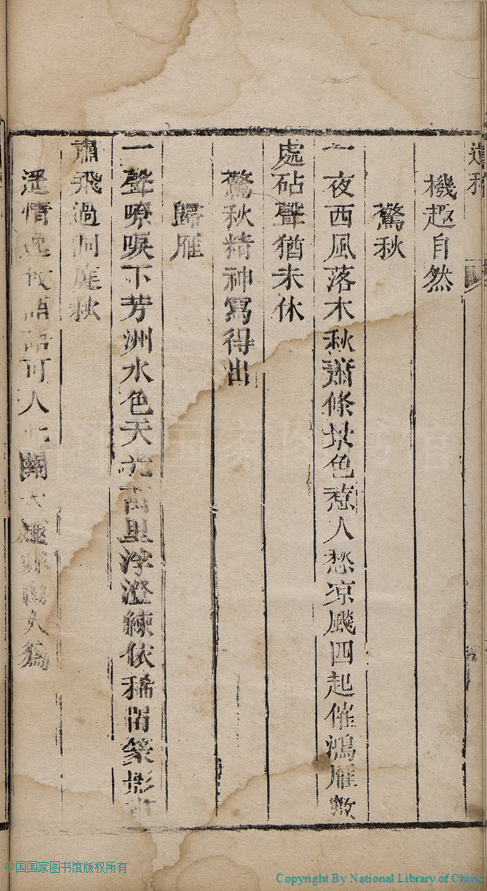 機趣自然
驚秋
一夜西風落木秋蕭條景色惹人愁凉颷四起催鴻雁數
處砧聲猶未休
驚秋精神寫得出
歸雁
一聲嘹唳下芳洲水色天光萬里浮澄練依稀留篆影
肅飛過洞庭秋
逐情逸致語語可人
中国国家图书馆版权所有
Copyright By National Library of China